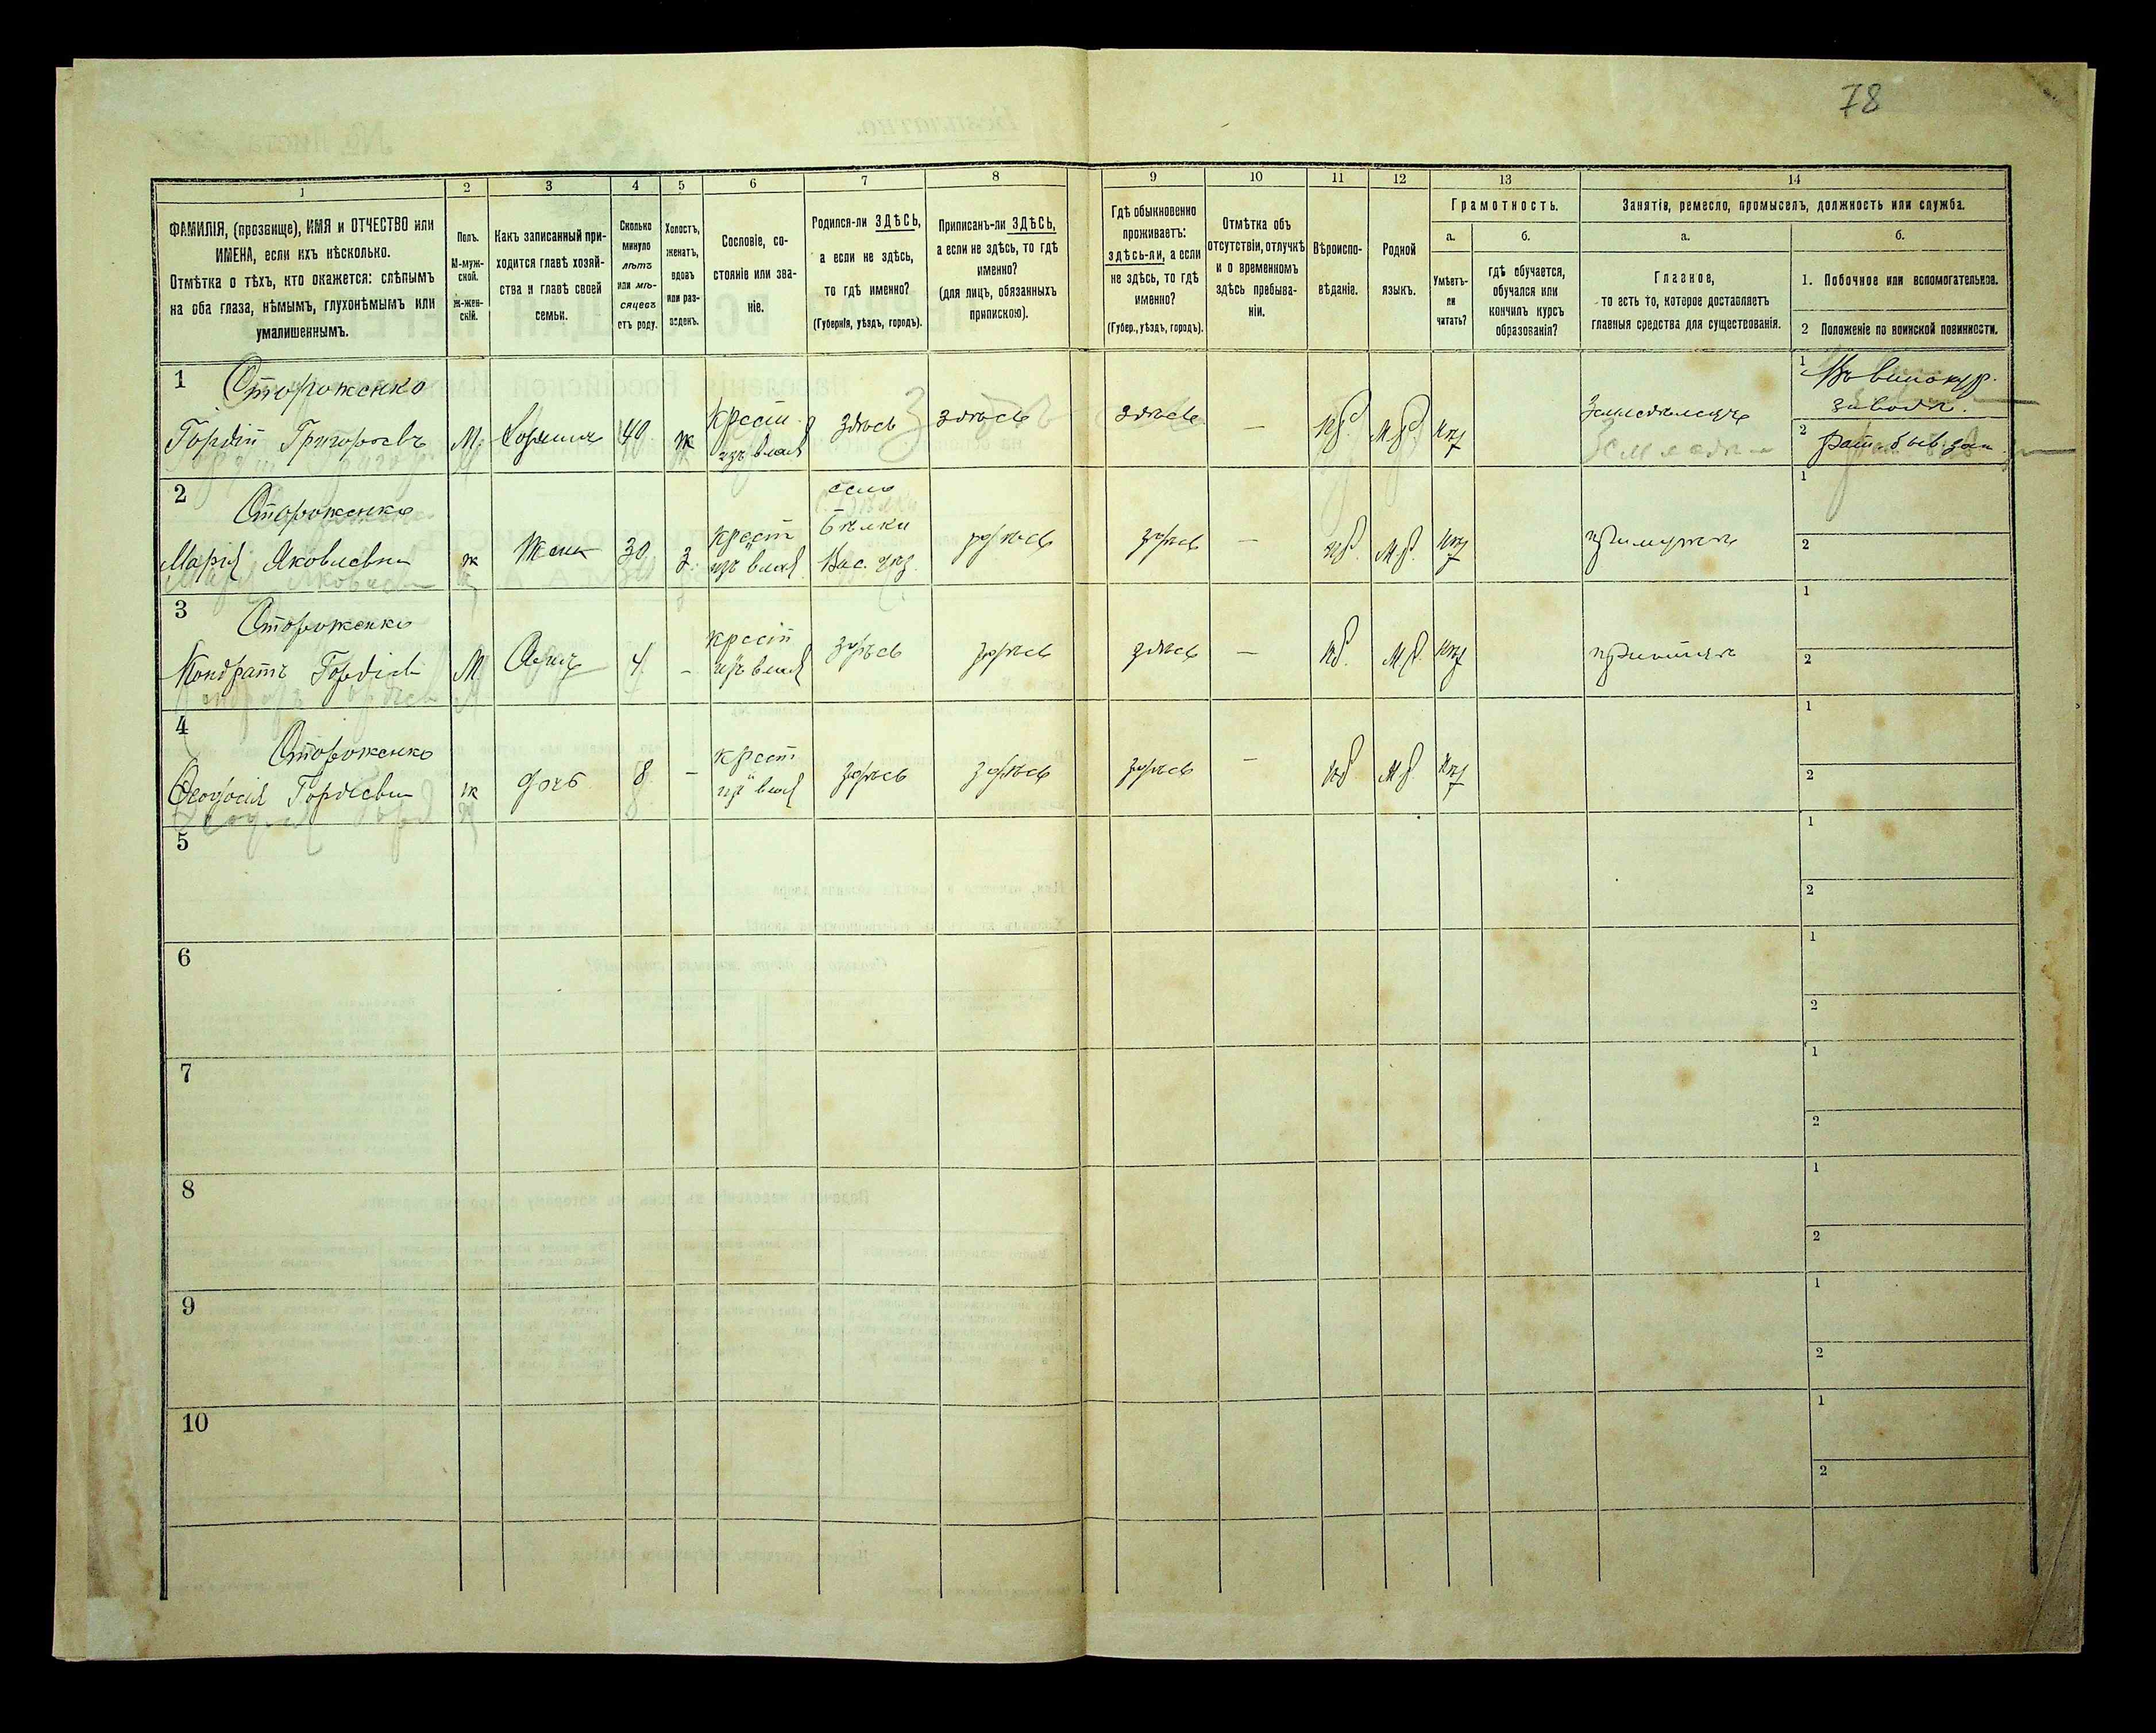 78
1 2 3 4 5 6 7 8 9 10 11 12 13 14
ФАМИЛІЯ, (прозвище), ИМЯ и ОТЧЕСТВО или
ИМЕНА, если ихъ нѣсколько.
Отмѣтка о тѣхъ, кто окажется: слѣпымъ
на оба глаза, нѣмымъ, глухонѣмымъ или
умалишеннымъ.
Полъ.
М-муж-
ской.
Ж-жен-
скій.
Какъ записанный при-
ходится главѣ хозяй-
ства и главѣ своей
семьи.
Сколько
минуло
лѣтъ
или мѣ-
сяцевъ
отъ роду.
Холостъ,
женатъ,
вдовъ
или раз-
веденъ.
Сословіе, со-
стояніе или зва-
ніе.
Родился-ли ЗДѢСЬ,
а если не здѣсь,
то гдѣ именно?
(Губернія, уѣздъ, городъ).
Приписанъ-ли ЗДѢСЬ,
а если не здѣсь, то гдѣ
именно?
(для лицъ, обязанныхъ
припискою).
Гдѣ обыкновенно
проживаетъ:
здѣсь-ли, а если
не здѣсь, то гдѣ
именно?
(Губер., уѣздъ, городъ).
Отмѣтка объ
отсутствіи, отлучкѣ
и о временномъ
здѣсь пребыва-
ніи.
Вѣроиспо-
вѣданіе.
Родной
языкъ.
Грамотность.
а.
Умѣетъ-
ли
читать?
б.
гдѣ обучается,
обучался или
кончилъ курсъ
образованія?
Занятіе, ремесло, промыселъ, должность или служба.
а.
Главное,
то есть то, которое доставляетъ
главныя средства для существованія.
б.
1. Побочное или вспомогательное.
2 Положеніе по воинской повинности.
1 Стороженко
Гордій Григорьевъ М. Хозяинъ 40 ж Крест. изъ влад здѣсь здѣсь здѣсь — пр. М.р. нѣт Земледѣлецъ
1 Въ винокур.
заводѣ.
2 Рат.
2 Стороженко
Марія Яковлевна ж Жена 30 з. крест изъ влад село Бѣлки Вас. уѣз. здѣсь здѣсь — пр. М.р. нѣт при мужѣ
1
2
3 Стороженко
Кондратъ Гордіевъ М Сынъ 4 - крест изъ влад здѣсь здѣсь здѣсь — пр. М.р. нѣт
1
2
4 Стороженко
Феодосія Гордіевна ж дочь 8 - крест из влад здѣсь здѣсь здѣсь — пр М.р. нѣт
1
2
5
1
2
6
1
2
7
1
2
8
1
2
9
1
2
10
1
2